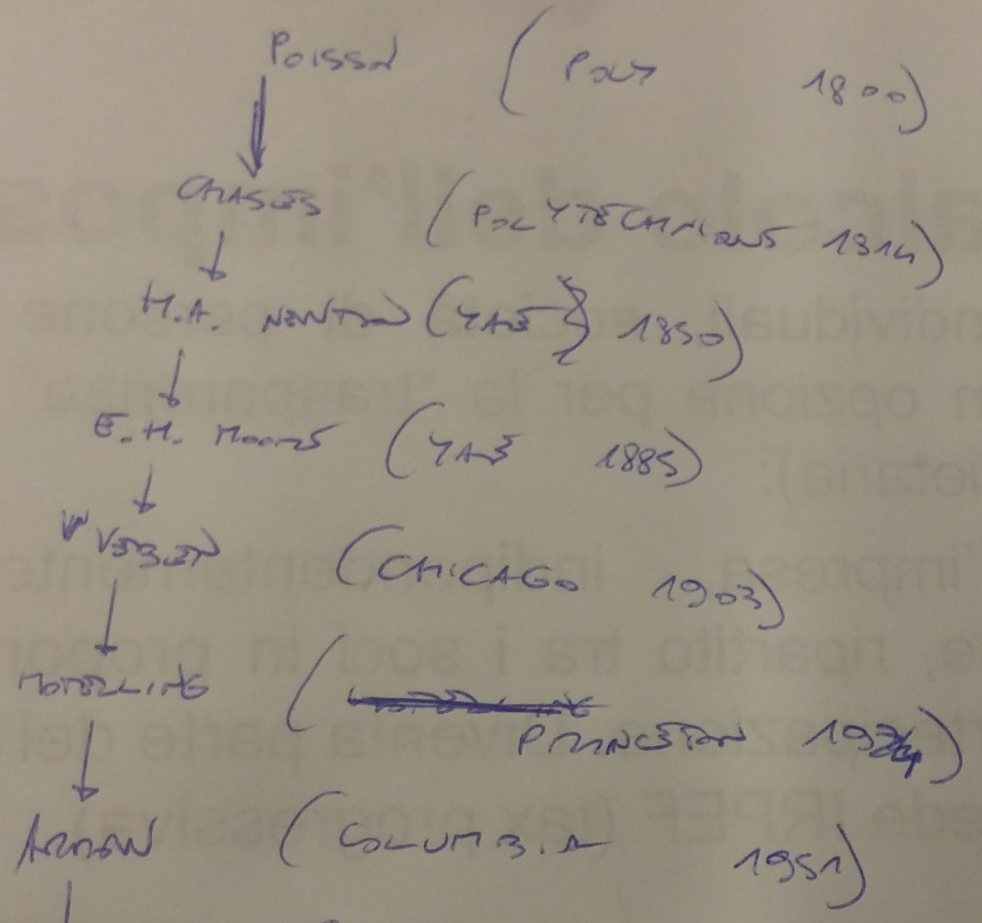 POISSON (POLY 1800)
CHASLES (POLYTECHNIQUE 1814)
H.A. NEWTON (YALE 1850)
E.H. MOORE (YALE 1885)
VEBLEN (CHICAGO 1903)
HOTELLING (PRINCETON 1924)
ARROW (COLUMBIA 1951)